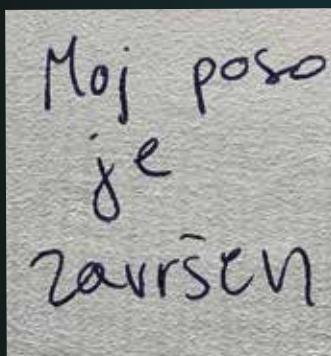 Moj poso
je
završen